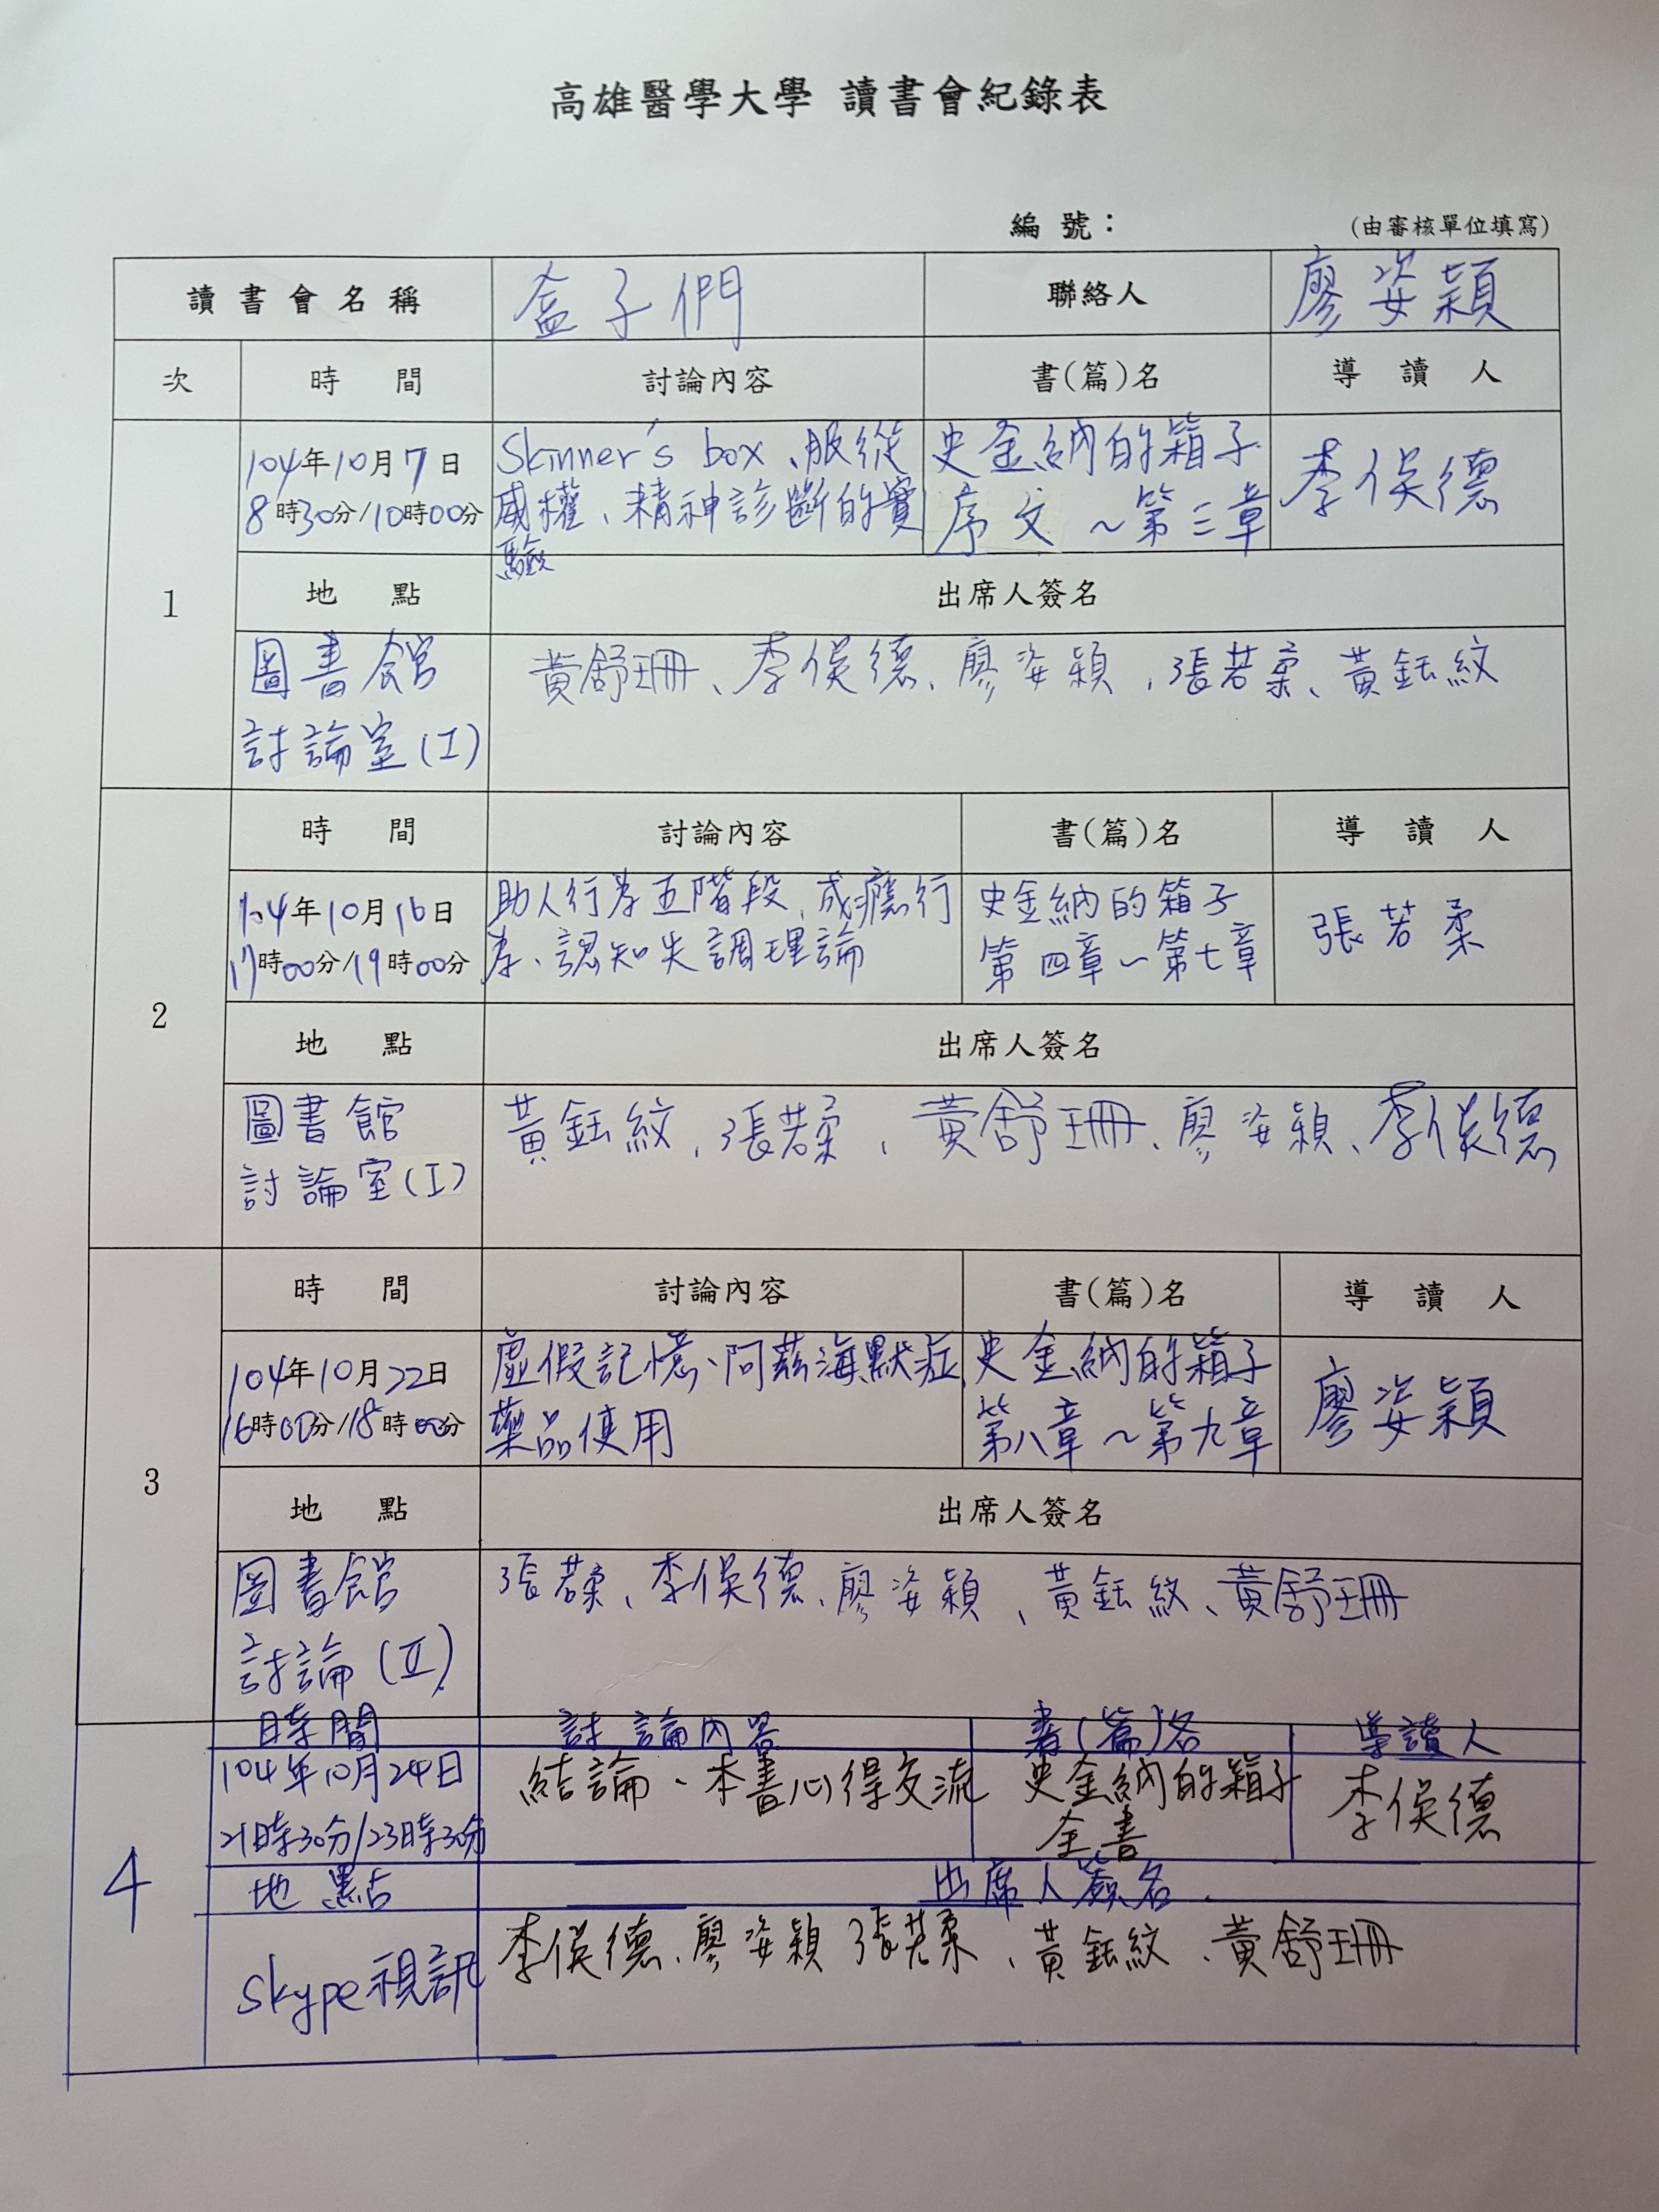 高雄醫學大學 讀書會紀錄表
編號：
(由審核單位填寫)
讀書會名稱 盒子們 聯絡人 廖姿穎
次 時間 討論內容 書(篇)名 導讀人
1
104年10月7日
8時30分/10時00分
Skinner's box、服從
威權、精神診斷的實
驗
史金納的箱子
序文~第三章
李俁德
地點 出席人簽名
圖書館
討論室(I)
黃舒珊、李俁德、廖姿穎、張若柔、黃鈺紋
2
時間 討論內容 書(篇)名 導讀人
104年10月16日
17時00分/19時00分
助人行為五階段、成癮行
為、認知失調理論
史金納的箱子
第四章~第七章
張若柔
地點 出席人簽名
圖書館
討論室(I)
黃鈺紋、張若柔、黃舒珊、廖姿穎、李俁德
3
時間 討論內容 書(篇)名 導讀人
104年10月22日
16時00分/18時00分
虛假記憶、阿茲海默症
藥品使用
史金納的箱子
第八章~第九章
廖姿穎
地點 出席人簽名
圖書館
討論(II)
張若柔、李俁德、廖姿穎、黃鈺紋、黃舒珊
4
時間 討論內容 書(篇)名 導讀人
104年10月24日
21時30分/23時30分
結論、本書心得交流
史金納的箱子
全書
李俁德
地點 出席人簽名
skype視訊
李俁德、廖姿穎 張若柔、黃鈺紋、黃舒珊